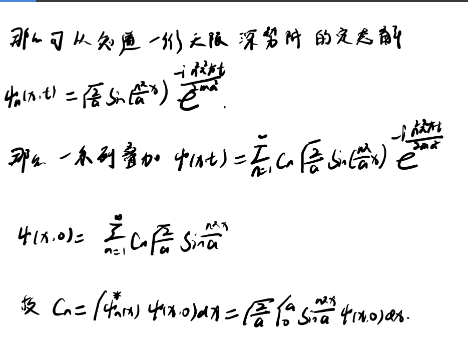 那么可以知道一维无限深势阱的定态解
ψₙ(x,t) = √(2/a) sin(nπ/a x) e^(-i n²π²ħt/2ma²).
那么一系列叠加 ψ(x,t) = Σₙ₌₁^∞ Cₙ √(2/a) sin(nπ/a x) e^(-i n²π²ħt/2ma²)
ψ(x,0) = Σₙ₌₁^∞ Cₙ √(2/a) sin nπx/a
Cₙ = ∫ψₙ*(x) ψ(x,0)dx = √(2/a) ∫₀^a sin nπx/a ψ(x,0)dx.